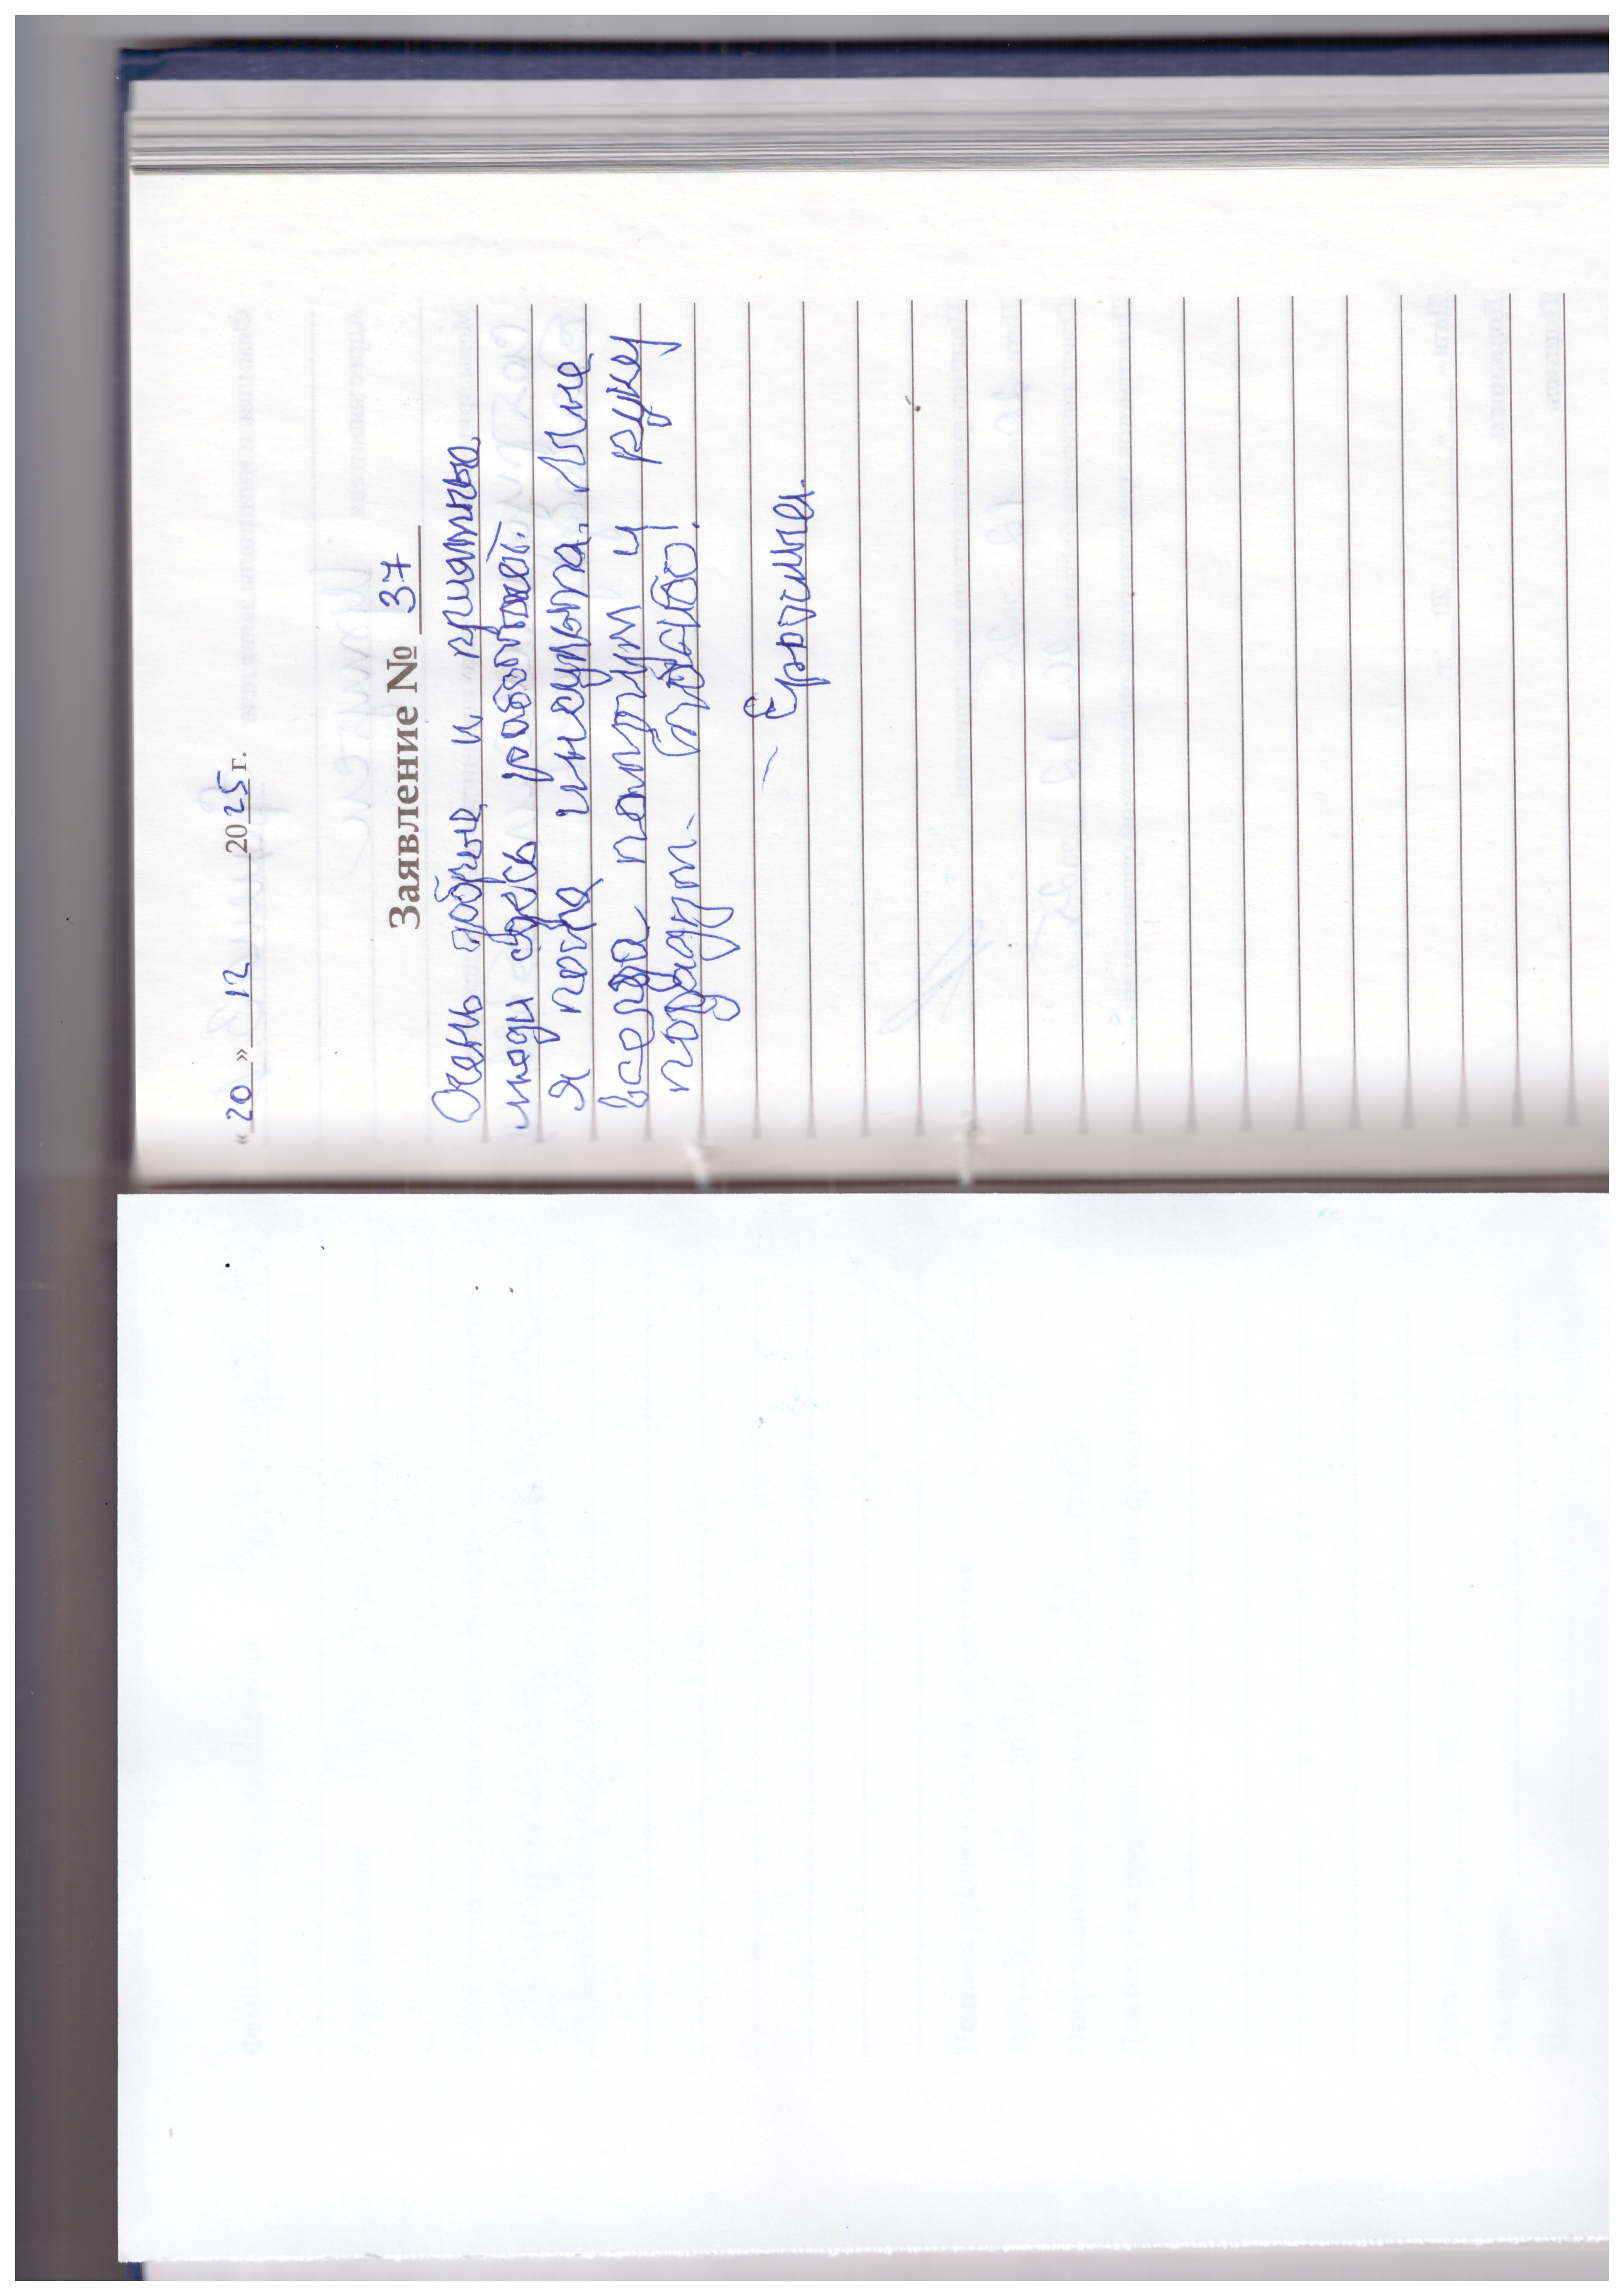 «20» 12 2025 г.
Заявление № 37
Очень добрые и приятные
люди здесь работают.
я после инсульта. Мне
всегда помогут и руку
подадут. Спасибо!
- Ерасина.